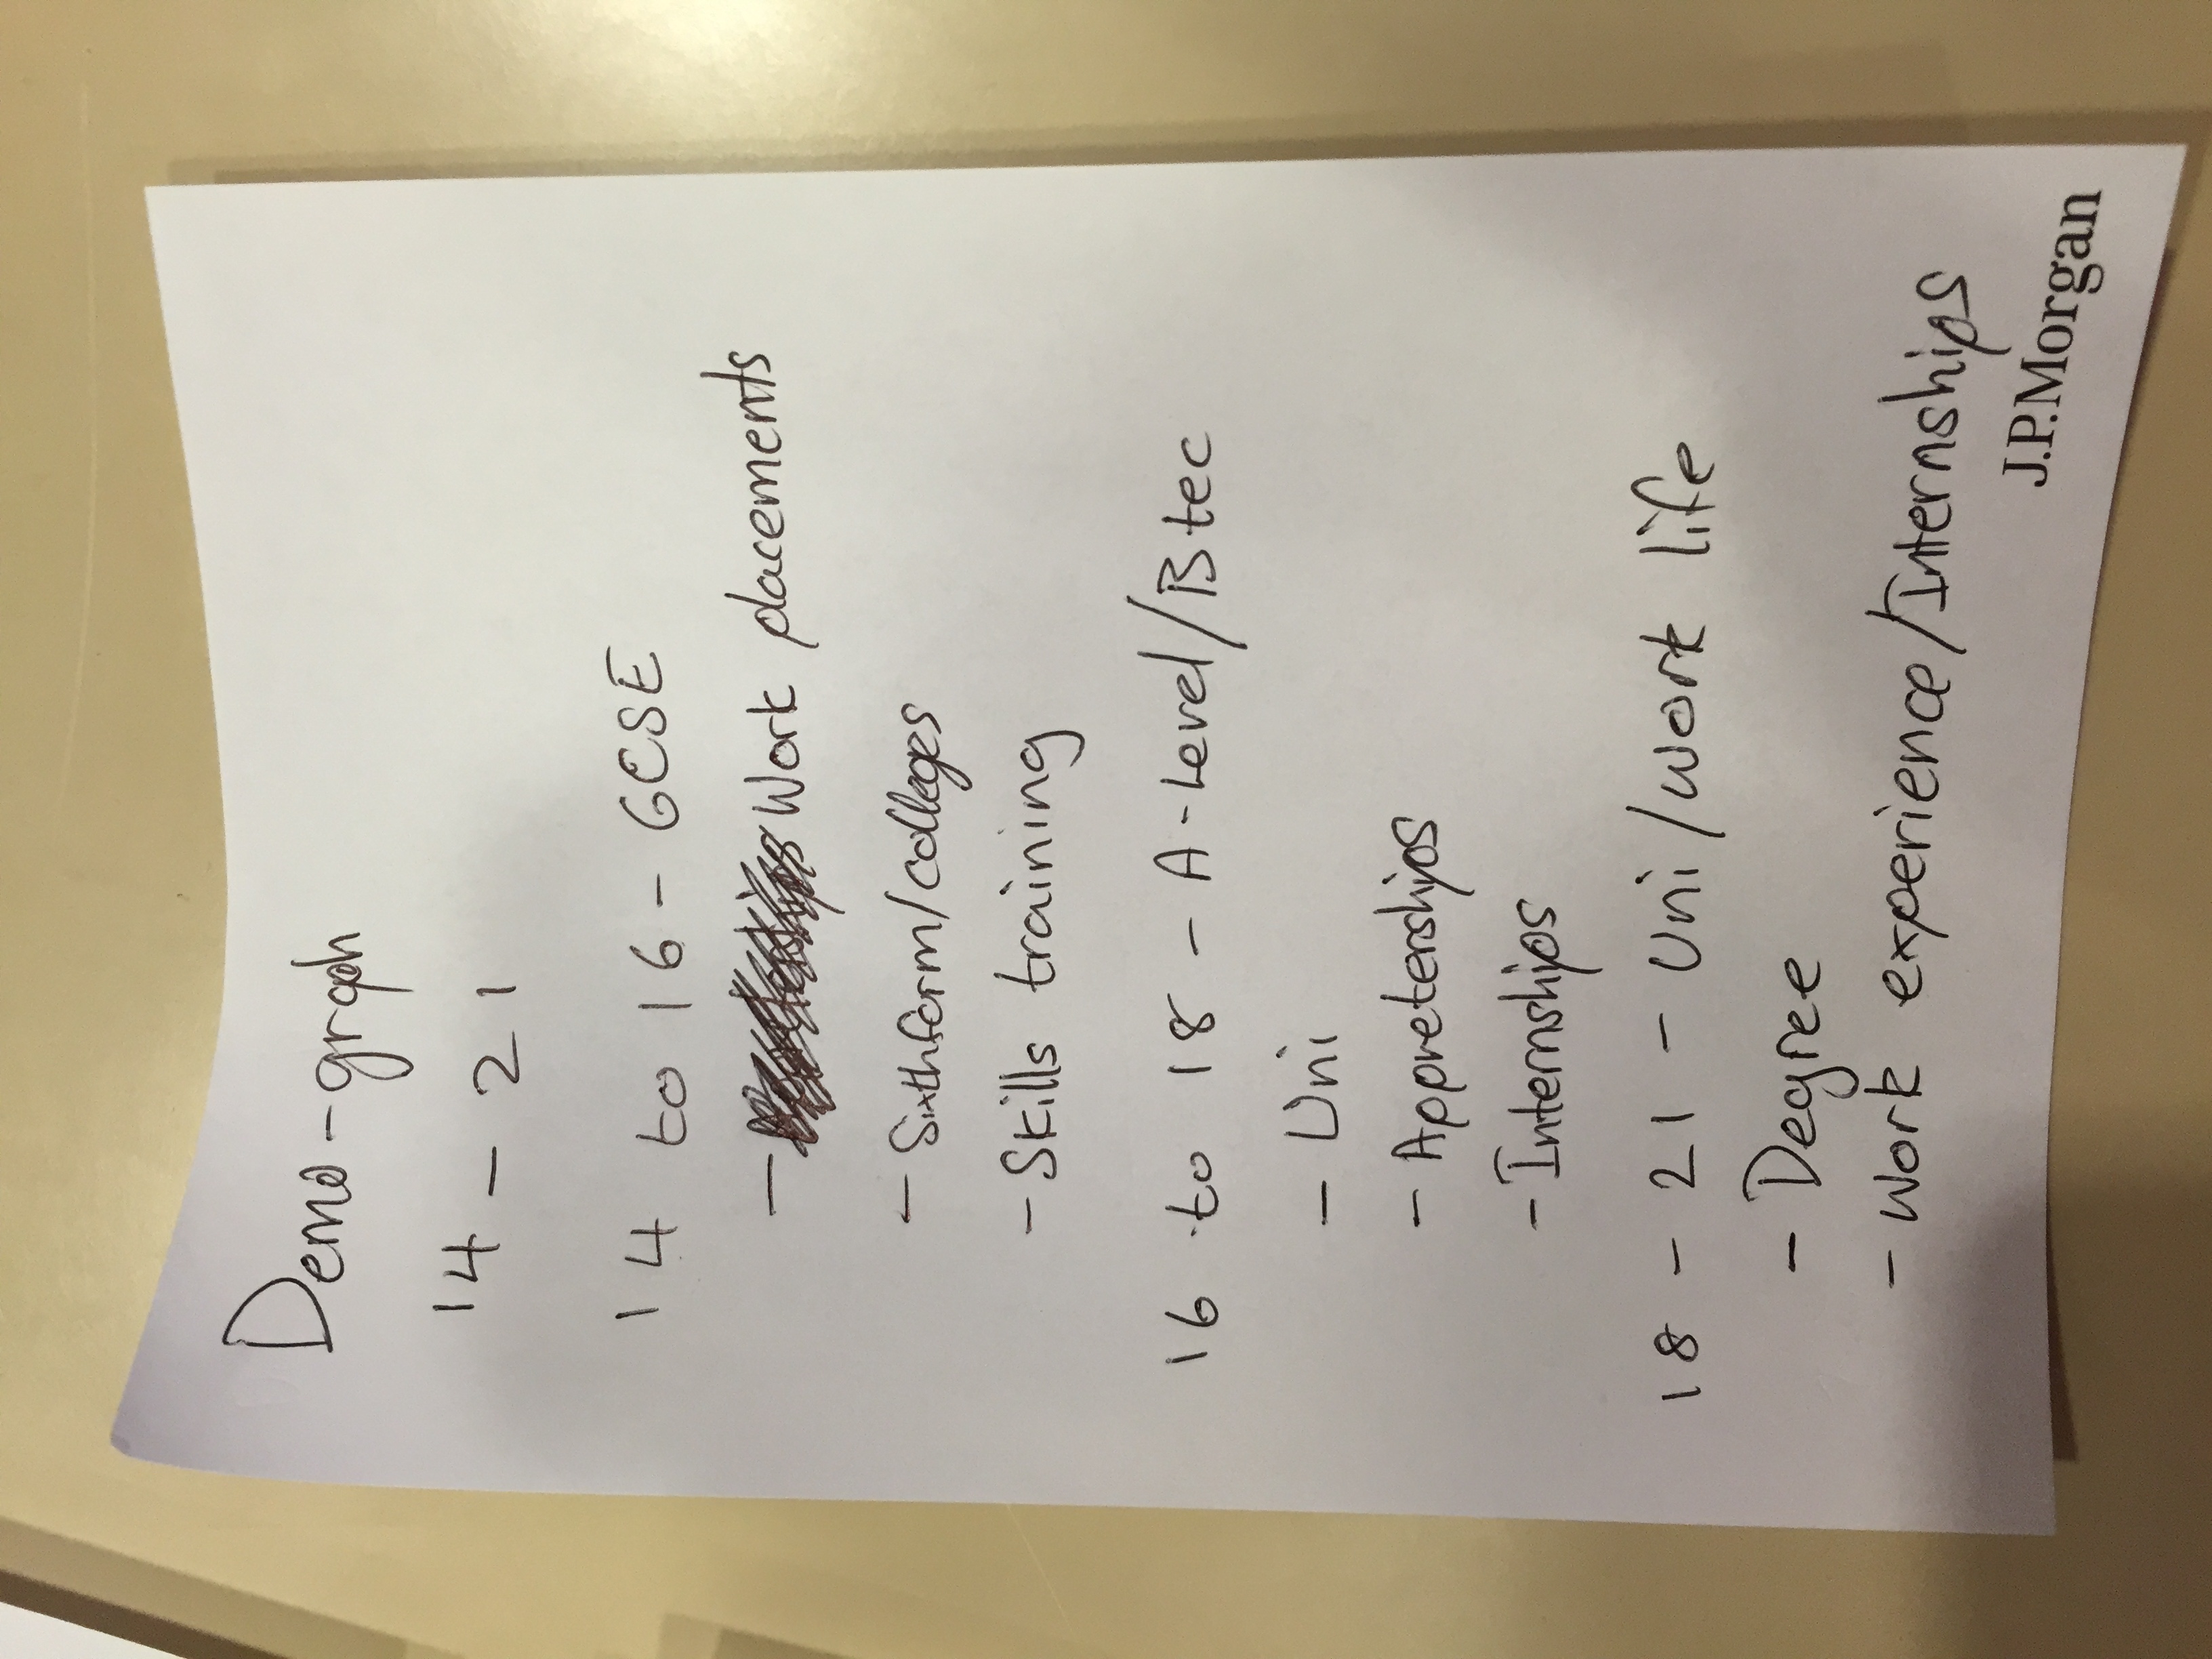 Demo-graph
14 - 21
14 to 16 - GCSE
- Work placements
- Sixthform/colleges
- Skills training
16 to 18 - A-Level/Btec
- Uni
- Appreterships
- Internships
18 - 21 - Uni/work life
- Degree
- Work experience/Internships
J.P.Morgan